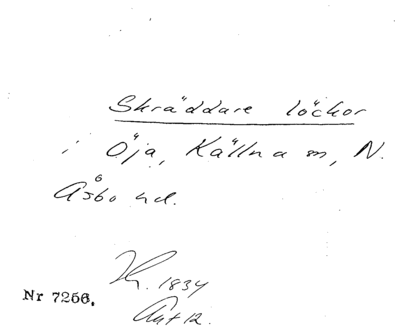 Skräddare löckor
i Öja, Källna sn, N.
Åsbo hd.
1834
Nr 7256.
Ant 12.